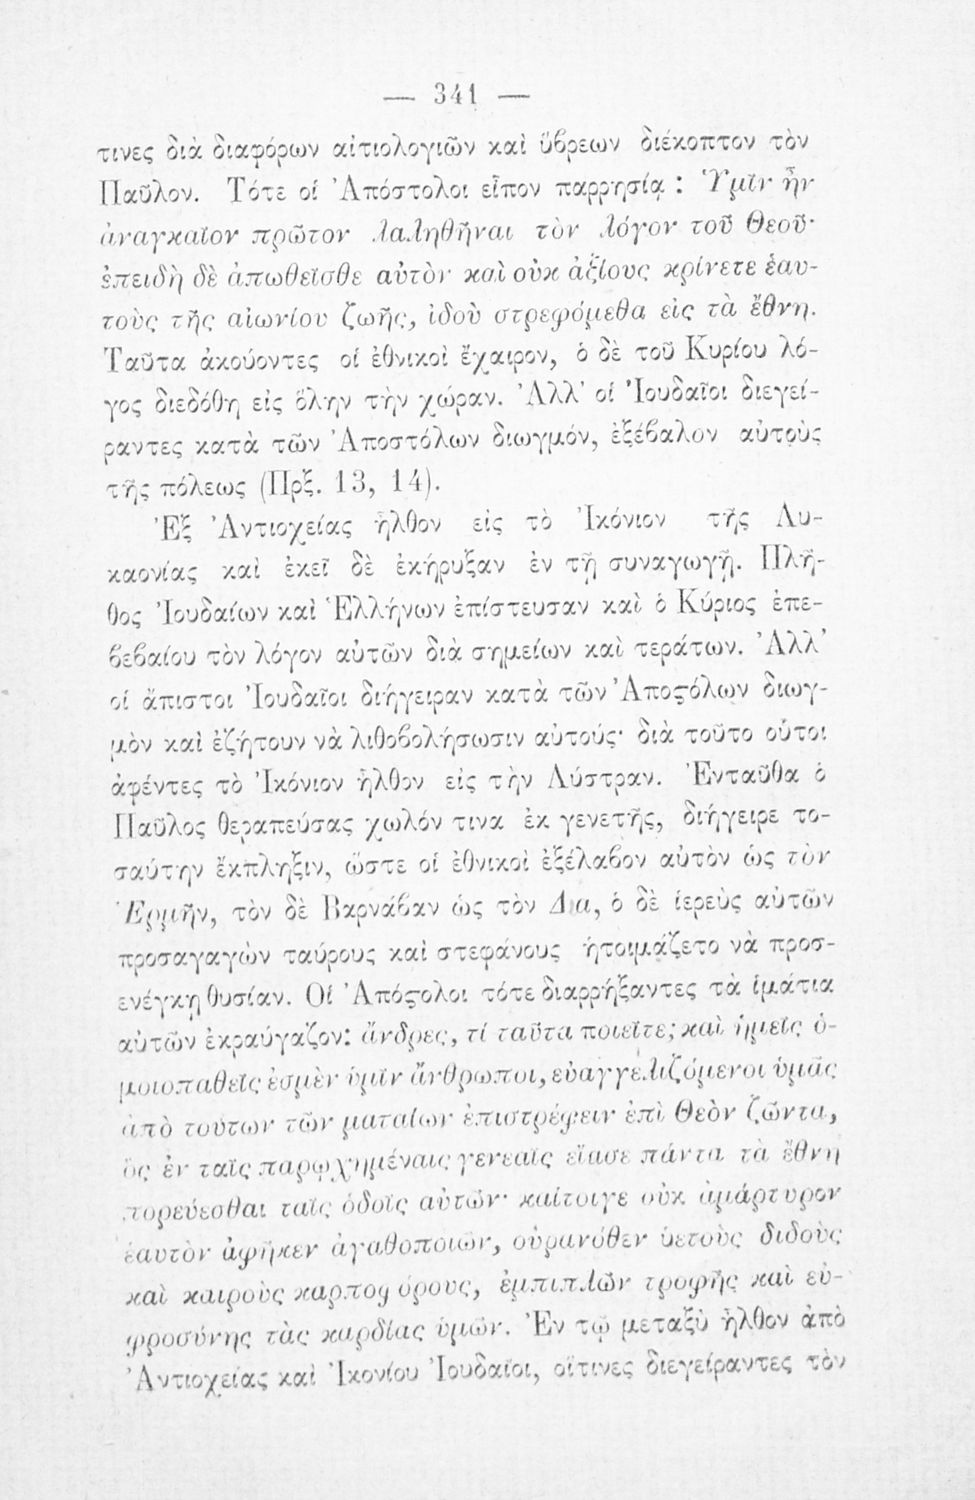 — 341 —
τινες διὰ διαφόρων αἰτιολογιῶν καὶ ὕβρεων διέκοπτον τὸν
Παῦλον. Τότε οἱ Ἀπόστολοι εἶπον παρρησίᾳ : Ὑμῖν ἦν
ἀναγκαῖον πρῶτον λαληθῆναι τὸν λόγον τοῦ Θεοῦ·
ἐπειδὴ δὲ ἀπωθεῖσθε αὐτὸν καὶ οὐκ ἀξίους κρίνετε ἑαυ-
τοὺς τῆς αἰωνίου ζωῆς, ἰδοὺ στρεφόμεθα εἰς τὰ ἔθνη.
Ταῦτα ἀκούοντες οἱ ἐθνικοὶ ἔχαιρον, ὁ δὲ τοῦ Κυρίου λό-
γος διεδόθη εἰς ὅλην τὴν χώραν. Ἀλλ' οἱ Ἰουδαῖοι διεγεί-
ραντες κατὰ τῶν Ἀποστόλων διωγμόν, ἐξέβαλον αὐτοὺς
τῆς πόλεως (Πρξ. 13, 14).
Ἐξ Ἀντιοχείας ἦλθον εἰς τὸ Ἰκόνιον τῆς Λυ-
καονίας καὶ ἐκεῖ δὲ ἐκήρυξαν ἐν τῇ συναγωγῇ. Πλῆ-
θος Ἰουδαίων καὶ Ἑλλήνων ἐπίστευσαν καὶ ὁ Κύριος ἐπε-
βεβαίου τὸν λόγον αὐτῶν διὰ σημείων καὶ τεράτων. Ἀλλ'
οἱ ἄπιστοι Ἰουδαῖοι διήγειραν κατὰ τῶν Ἀποϛόλων διωγ-
μὸν καὶ ἐζήτουν νὰ λιθοβολήσωσιν αὐτούς· διὰ τοῦτο οὗτοι
ἀφέντες τὸ Ἰκόνιον ἦλθον εἰς τὴν Λύστραν. Ἐνταῦθα ὁ
Παῦλος θεραπεύσας χωλόν τινα ἐκ γενετῆς, διήγειρε το-
σαύτην ἔκπληξιν, ὥστε οἱ ἐθνικοὶ ἐξέλαβον αὐτὸν ὡς τὸν
Ἑρμῆν, τὸν δὲ Βαρνάβαν ὡς τὸν Δια, ὁ δὲ ἱερεὺς αὐτῶν
προσαγαγὼν ταύρους καὶ στεφάνους ἡτοιμάζετο νὰ προσ-
ενέγκῃ θυσίαν. Οἱ Ἀπόϛολοι τότε διαρρήξαντες τὰ ἱμάτια
αὐτῶν ἐκραύγαζον: ἄνδρες, τί ταῦτα ποιεῖτε; καὶ ἡμεῖς ὁ-
μοιοπαθεῖς ἐσμὲν ὑμῖν ἄνθρωποι, εὐαγγελιζόμενοι ὑμᾶς
ἀπὸ τούτων τῶν ματαίων ἐπιστρέφειν ἐπὶ Θεὸν ζῶντα,
ὃς ἐν ταῖς παρῳχημέναις γενεαῖς εἴασε πάντα τὰ ἔθνη
πορεύεσθαι ταῖς ὁδοῖς αὐτῶν· καίτοιγε οὐκ ἀμάρτυρον
ἑαυτὸν ἀφῆκεν ἀγαθοποιῶν, οὐρανόθεν ὑετοὺς διδοὺς
καὶ καιροὺς καρποφόρους, ἐμπιπλῶν τροφῆς καὶ εὐ-
φροσύνης τὰς καρδίας ὑμῶν. Ἐν τῷ μεταξὺ ἦλθον ἀπὸ
Ἀντιοχείας καὶ Ἰκονίου Ἰουδαῖοι, οἵτινες διεγείραντες τὸν